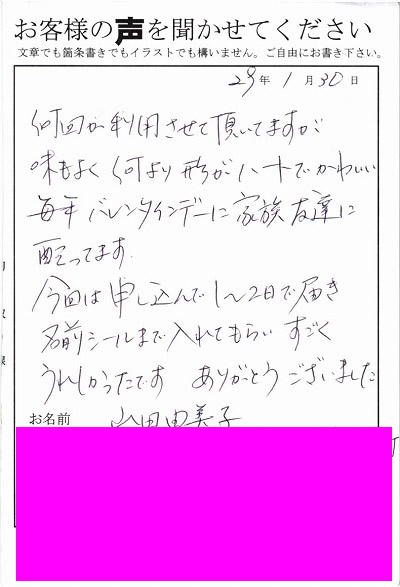 お客様の声を聞かせてください
文章でも箇条書きでもイラストでも構いません。ご自由にお書き下さい。
29年1月30日
何回か利用させて頂いてますが
味もよく何より形がハートでかわいい
毎年バレンタインデーに家族友達に
配ってます.
今回は申し込んで1〜2日で届き
名前シールまで入れてもらいすごく
うれしかったです ありがとうございました
お名前 山田由美子